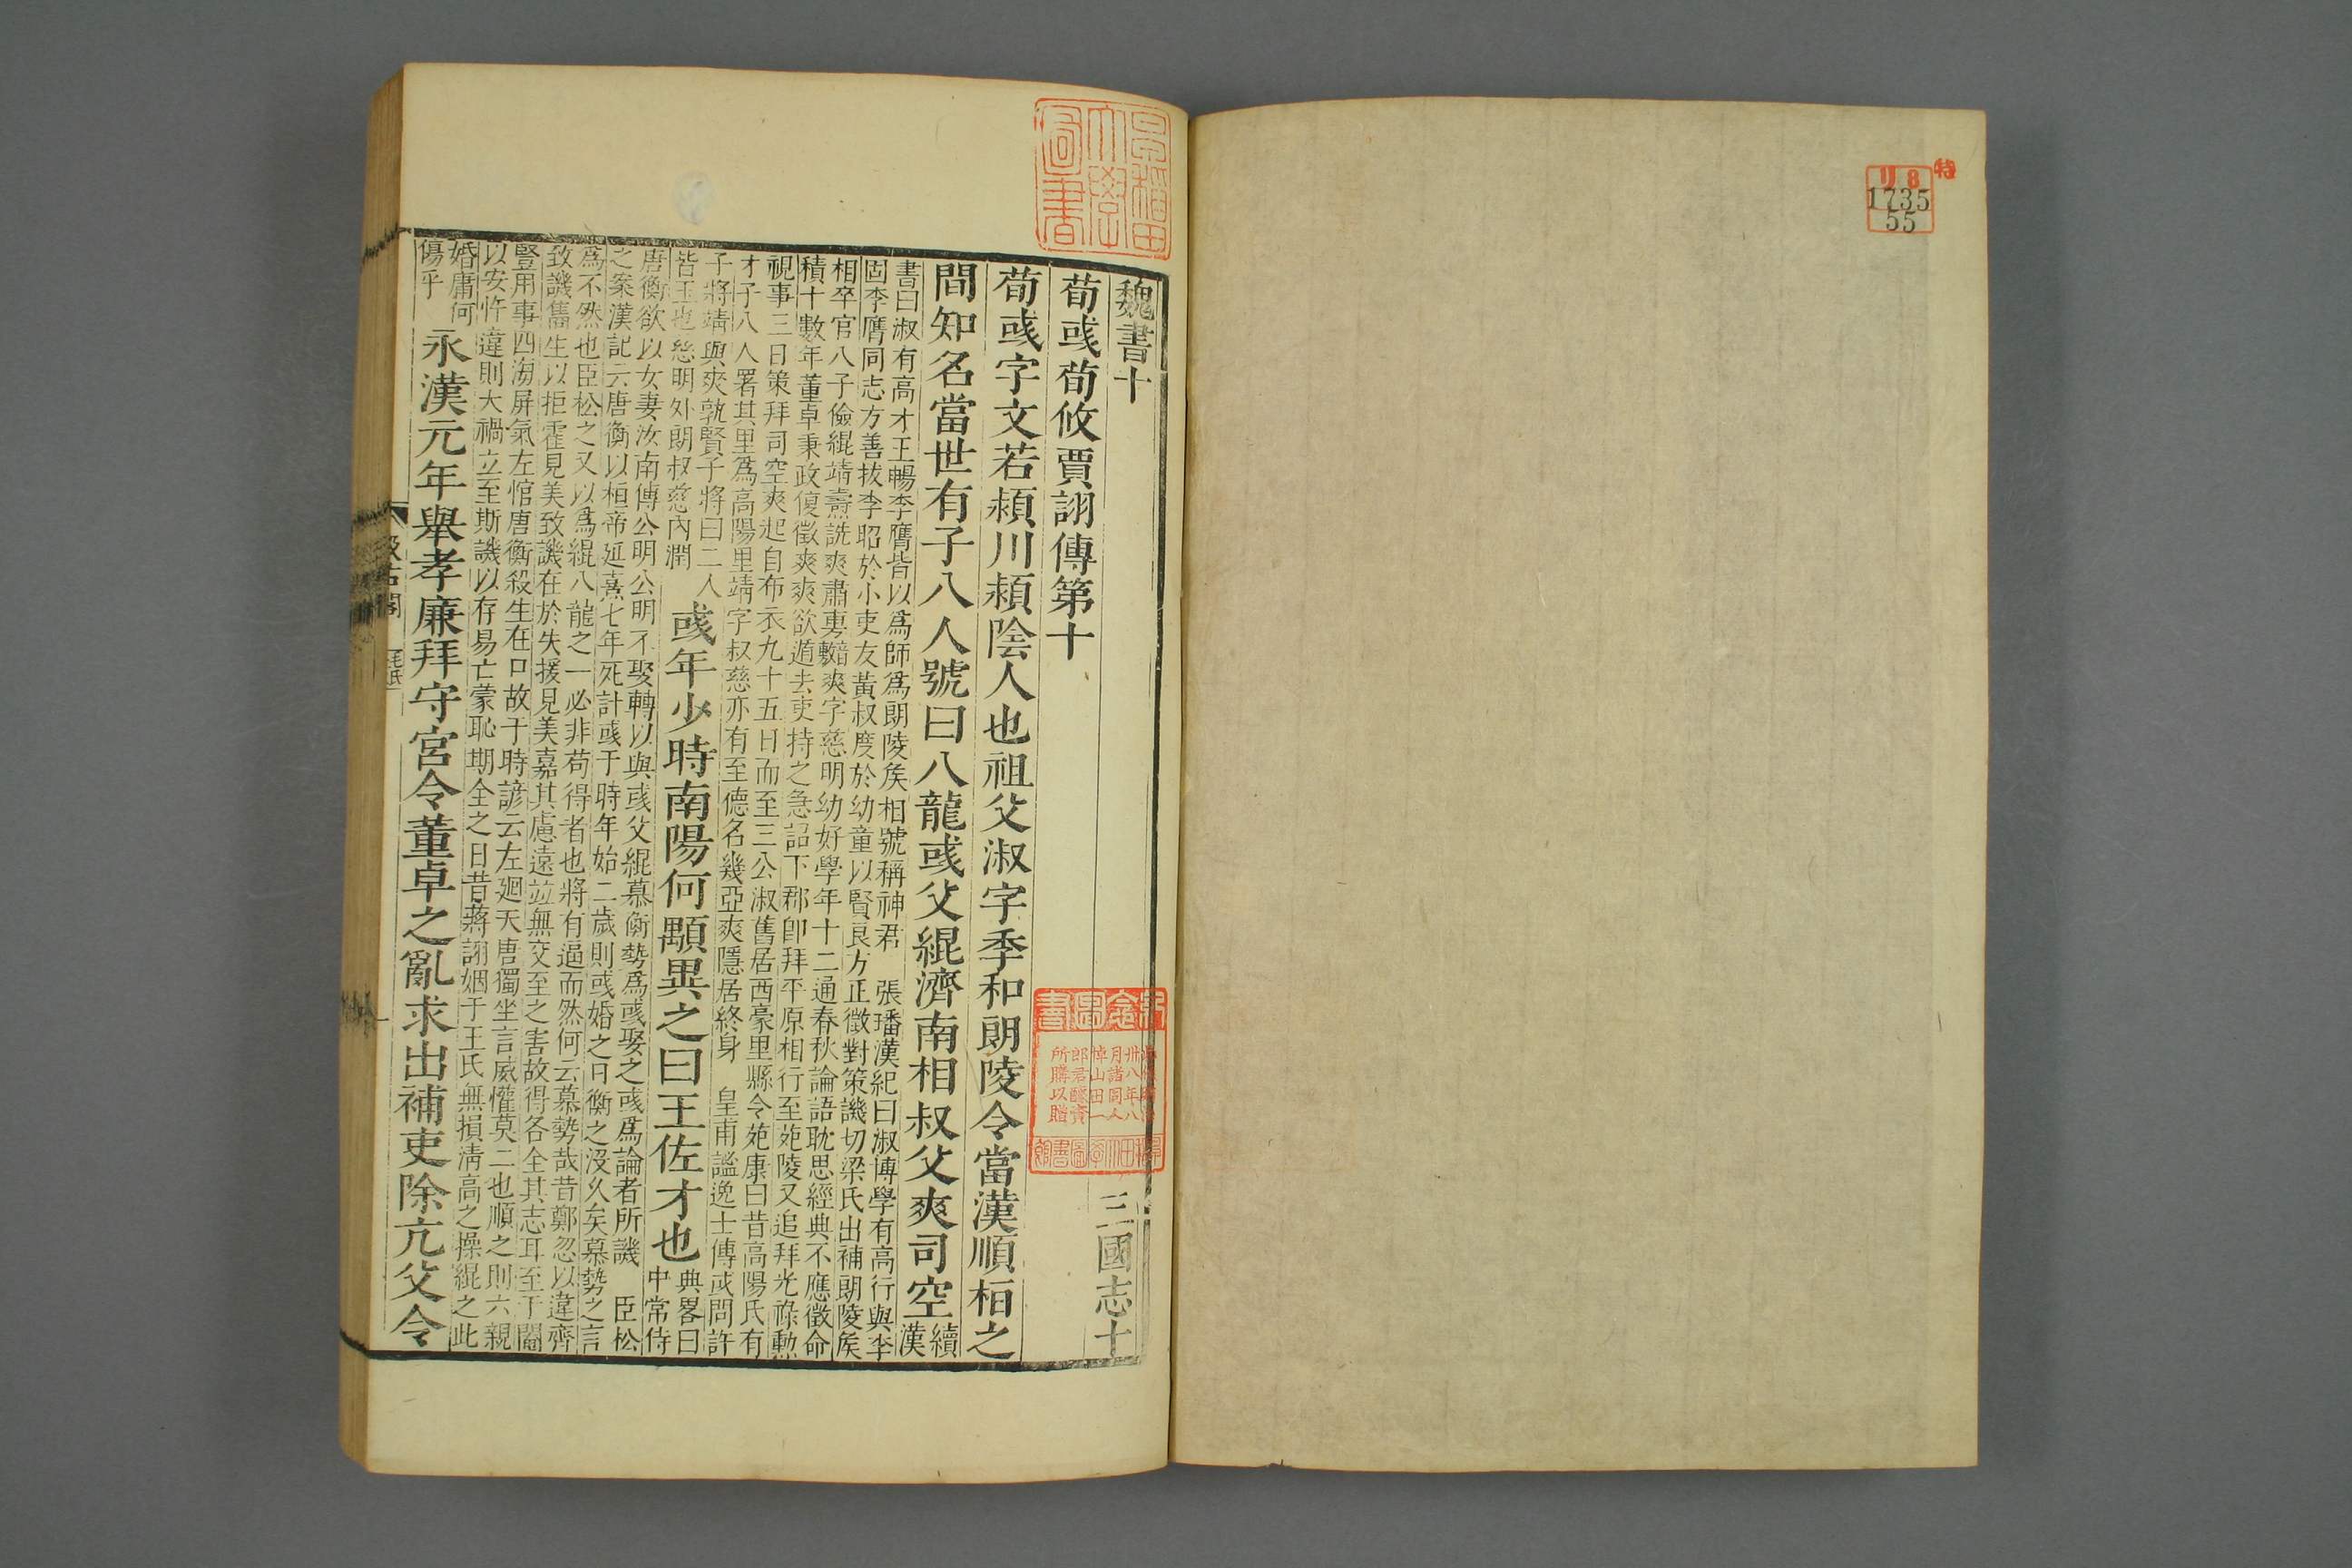 魏書十　三國志十
荀彧荀攸賈詡傳第十
荀彧字文若潁川潁陰人也祖父淑字季和朗陵令當漢順桓之
間知名當世有子八人號曰八龍彧父緄濟南相叔父爽司空續漢
書曰淑有高才王暢李膺皆以爲師爲朗陵矦相號稱神君　張璠漢紀曰淑博學有高行與李
固李膺同志方善拔李昭於小吏友黃叔度於幼童以賢良方正徵對策譏切梁氏出補朗陵矦
相卒官八子儉緄靖燾詵爽肅旉爽字慈明幼好學年十二通春秋論語耽思經典不應徵命
積十數年董卓秉政復徵爽爽欲遁去吏持之急詔下郡卽拜平原相行至苑陵又追拜光祿勲
視事三日策拜司空爽起自布衣九十五日而至三公淑舊居西豪里縣令苑康曰昔高陽氏有
才子八人署其里爲高陽里靖字叔慈亦有至德名幾亞爽隱居終身　皇甫謐逸士傳或問許
子將靖與爽孰賢子將曰二人
皆玉也慈明外朗叔慈內潤
彧年少時南陽何顒異之曰王佐才也典畧曰中常侍
唐衡欲以女妻汝南傅公明公明不娶轉以與彧父緄慕衡勢爲彧娶之彧爲論者所譏　臣松
之案漢記云唐衡以桓帝延熹七年死計彧于時年始二歲則彧婚之日衡之沒久矣慕勢之言
爲不然也臣松之又以爲緄八龍之一必非苟得者也將有逼而然何云慕勢哉昔鄭忽以違齊
致譏雋生以拒霍見美致譏在於失援見美嘉其慮遠竝無交至之害故得各全其志耳至于閹
豎用事四海屏氣左悺唐衡殺生在口故于時諺云左廻天唐獨坐言威懽莫二也順之則六親
以安忤違則大禍立至斯譏以存易亡蒙恥期全之日昔蔣詡姻于王氏無損清高之操緄之此
婚庸何
傷乎
永漢元年舉孝廉拜守宮令董卓之亂求出補吏除亢父令
汲古閣　毛氏
早稻田大學圖書
特
リ8
1735
55